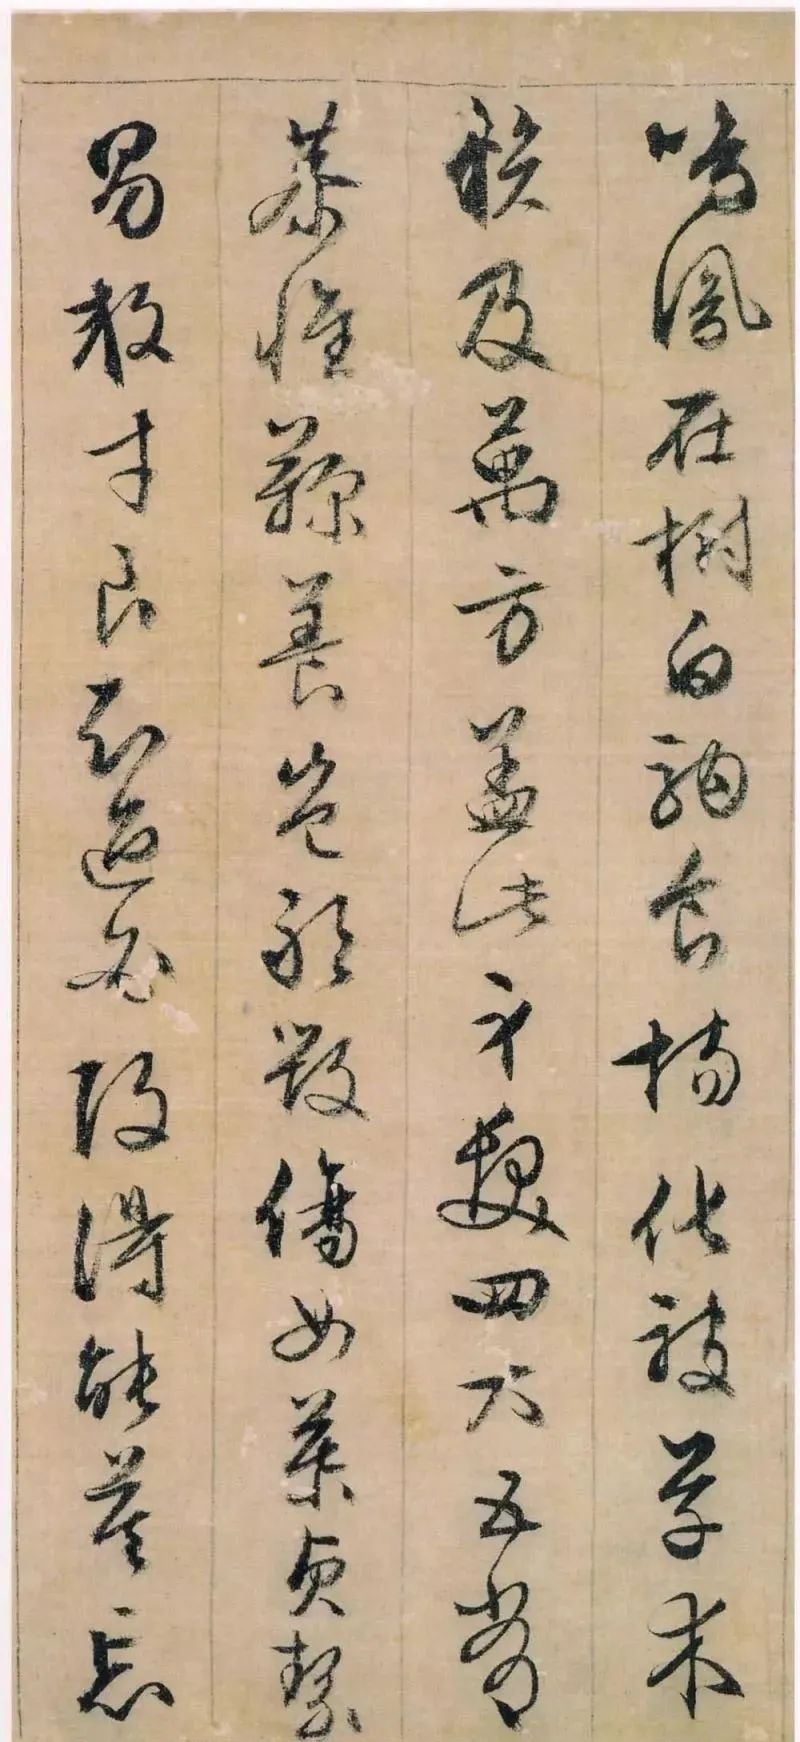 鳴鳳在樹白駒食場化被草木
賴及萬方蓋此身髮四大五常
恭惟鞠養豈敢毀傷女慕貞絜
男效才良知過必改得能莫忘